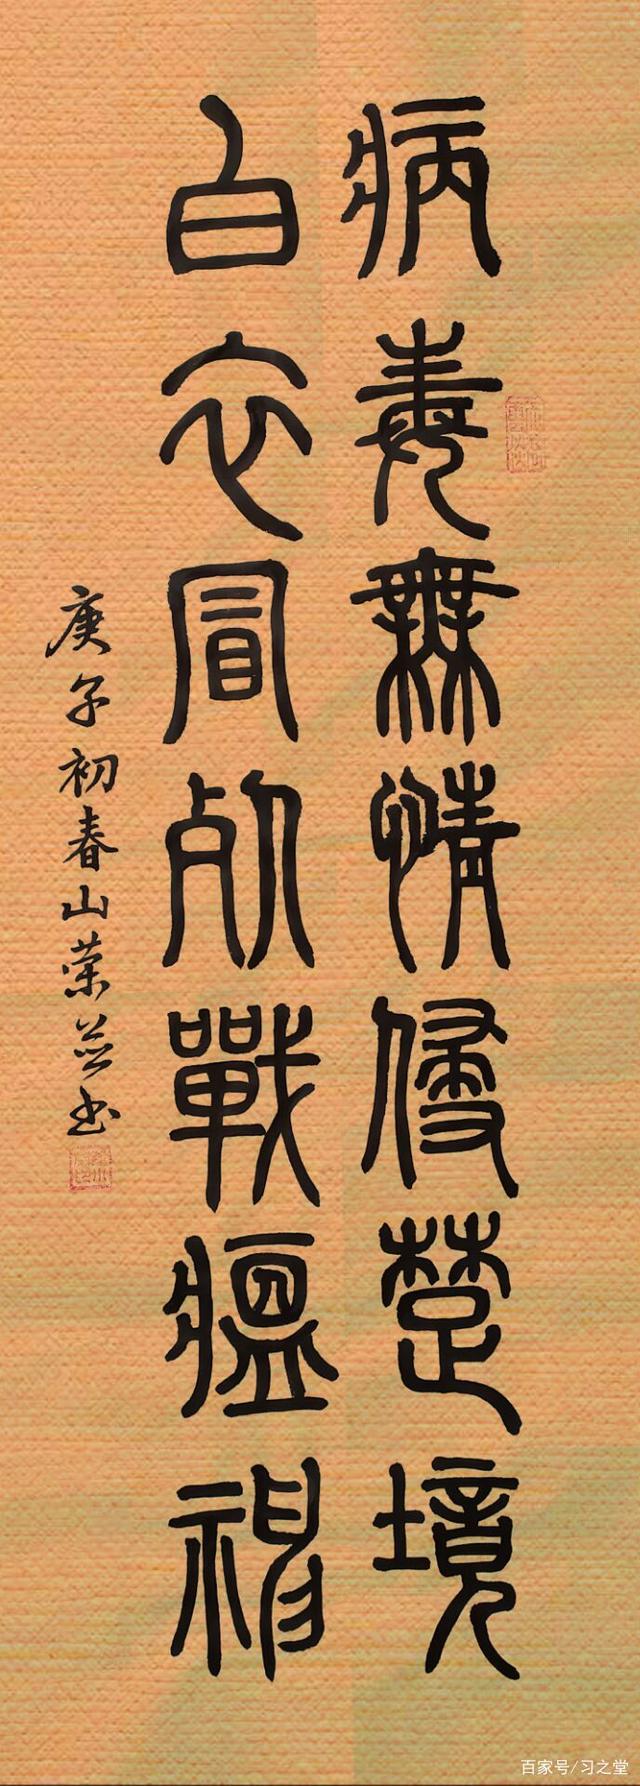 病毒無情侵楚境
白衣冒死戰瘟神
庚子初春山荣书
百家号/习之堂